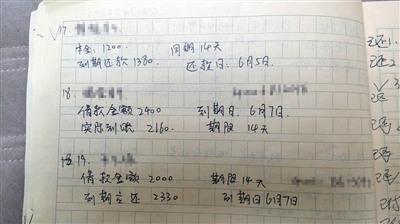 17.
本金: 1200 周期 14天
到期还款 1380 还款日: 6月5日.
18.
借款金额 2400 到期日: 6月7日.
实际到账 2160. 期限 14天
19.
借款金额 2000 期限 14天
到期应还 2330 到期日 6月7日